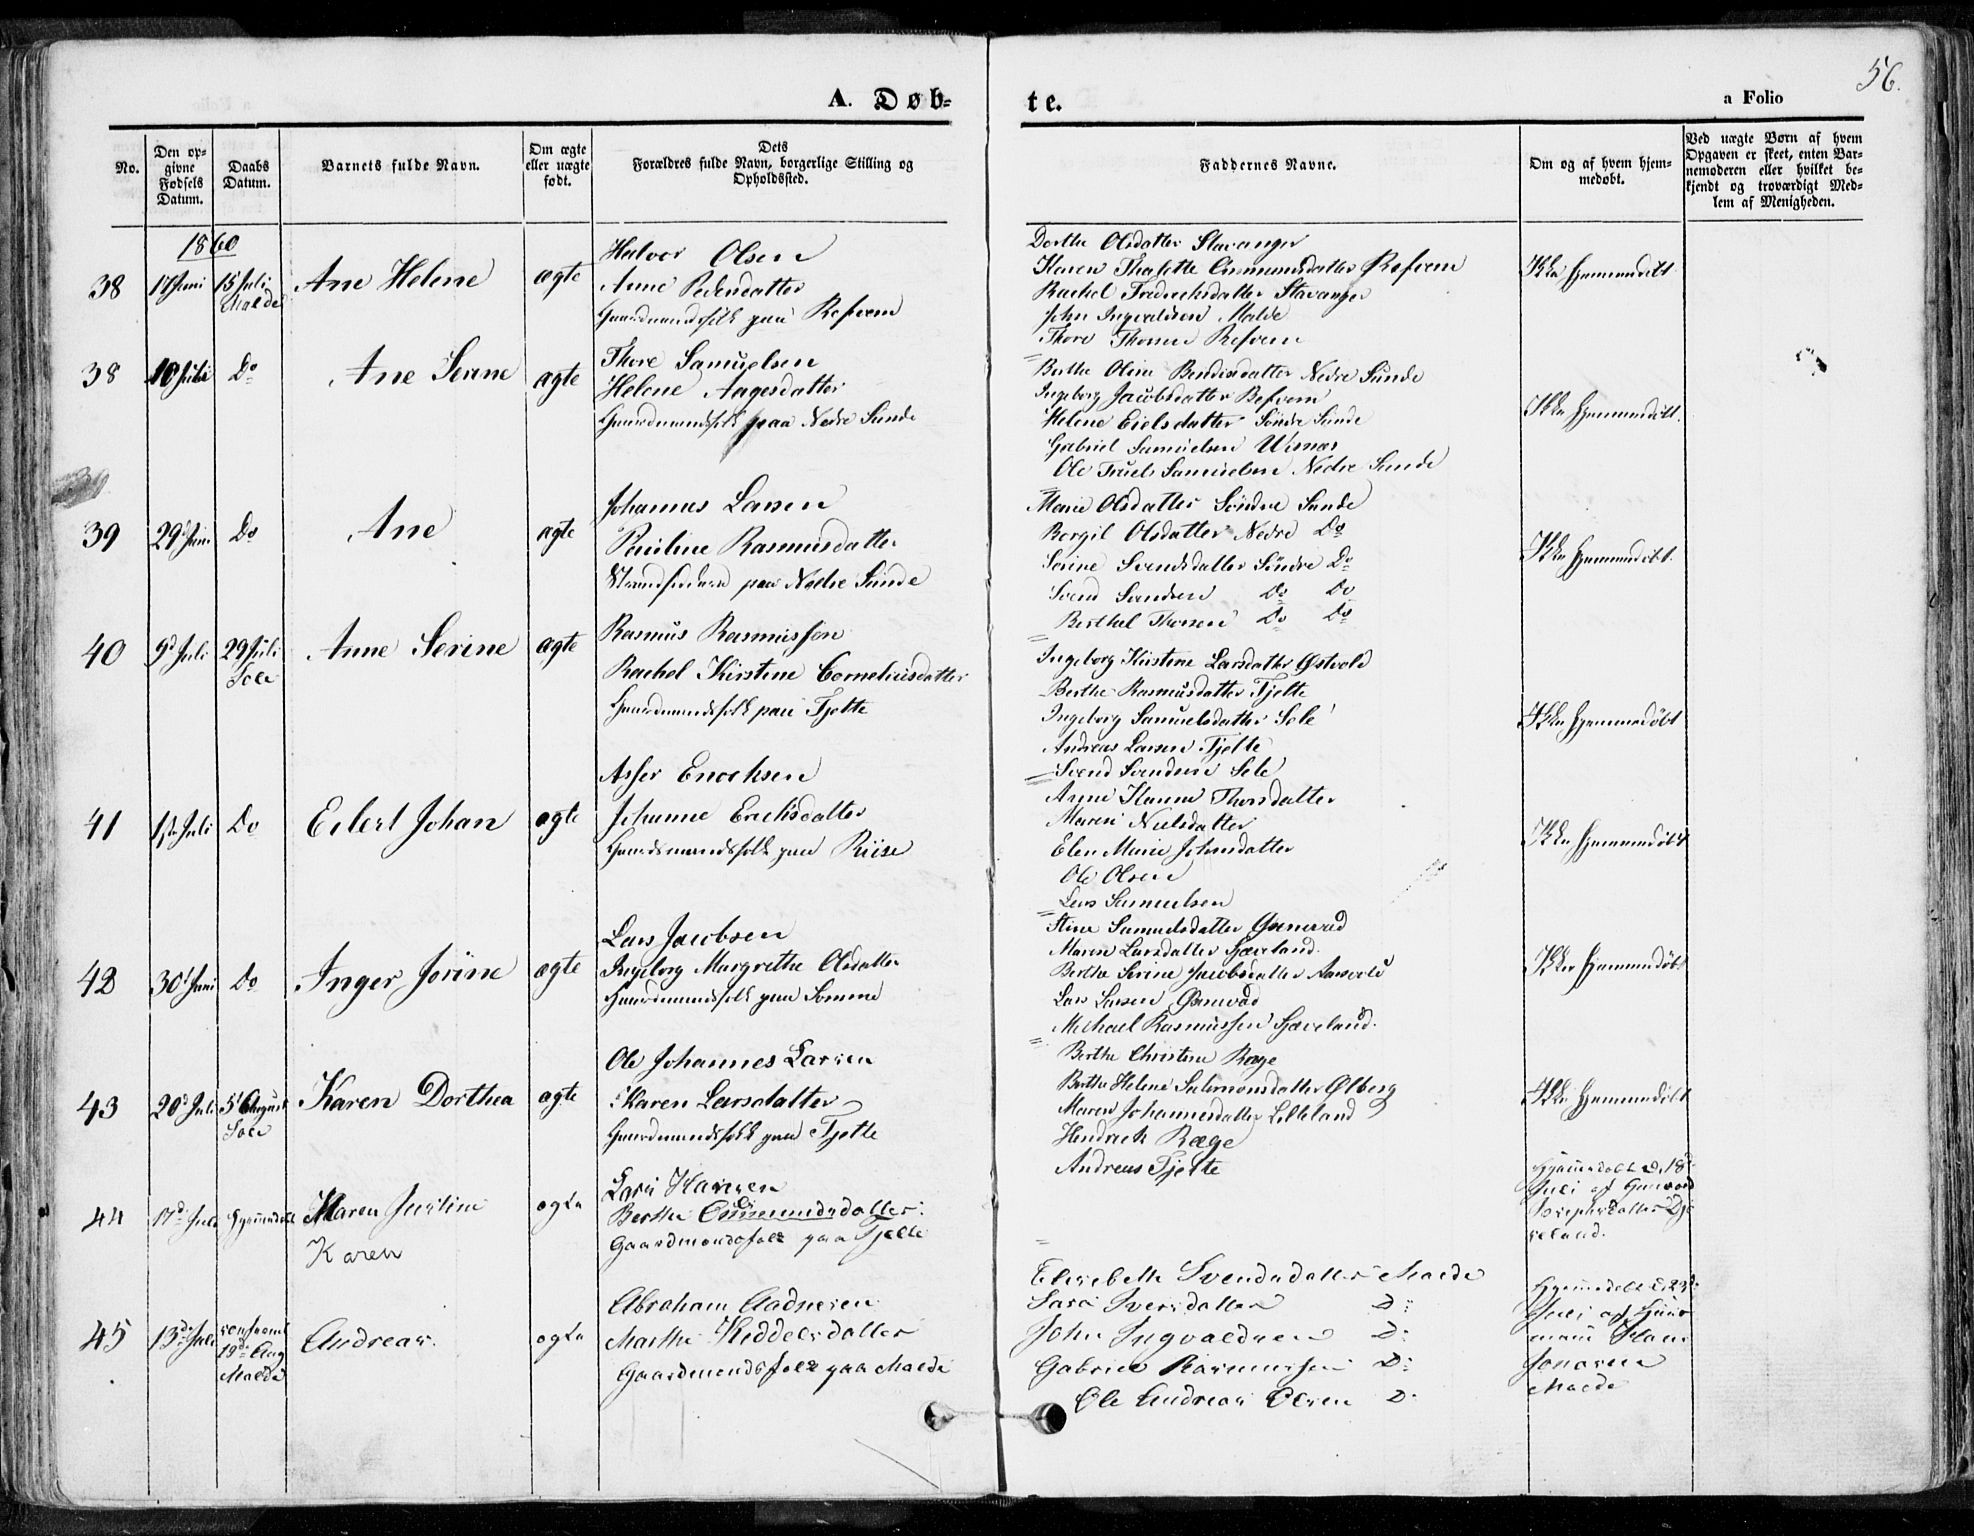 56.
A. Døb-
te.
a Folio
No.
Den op-
givne
Fødsels
Datum.
Daabs
Datum.
Barnets fulde Navn.
Om ægte
eller uægte
født.
Dets
Forældres fulde Navn, borgerlige Stilling og
Opholdssted.
Faddernes Navne.
Om og af hvem hjem-
medøbt.
Ved uægte Børn af hvem
Opgaven er skeet, enten Bar-
nemoderen eller hvilket be-
kjendt og troværdigt Med-
lem af Menigheden.
1860
38
15 Juli
Malde
Ane Helene
ægte
Halvor Olsen
Anne Pedersdatter
Gaardmandsfolk paa Refsem
Dorthe Olsdatter Stavanger
Karen Gummunsdatter Refsem
Rachel Fredrichsdatter Stavanger
John Ingvaldsen Malde
Thore Thorsen Refsem
Ikke hjemmedøbt
38
10 Juli
Do
Ane Serine
ægte
Thore Samuelsen
Helene Aagesdatter
Gaardmandsfolk paa Nedre Sunde
Berthe Oline Nedre Sunde
Ingeborg Jacobsdatter Refsem
Helene Eielsdatter Søndre Sunde
Gabriel Samuelsen Wisnæs
Ole Truels Samuelsen Nedre Sunde
Ikke hjemmedøbt.
39
29 Juni
Do
Ane
ægte
Johannes Larsen
Pauline Rasmusdatter
paa Nedre Sunde
Marie Olsdatter Søndre Sunde
Borgil Olsdatter Nedre Do
Serine Svendsdatter Søndre Do
Svend Svendsen Do Do
Berthel Thorsen Do Do
Ikke hjemmedøbt.
40
9d Juli
29 Juli
Sole
Anne Serine
ægte
Rasmus Rasmussen
Rachel Kirstine Corneliusdatter
Gaardmandsfolk paa Tjelte
Ingeborg Kirstine Larsdatter Østvold
Berthe Rasmusdatter Tjelte
Ingeborg Samuelsdatter Sole
Andreas Larsen Tjelte
Svend Svendsen Sole
Ikke hjemmedøbt
41
1ste Juli
Do
Eilert Johan
ægte
Asser Enochsen
Johanne Erichsdatter
Gaardmandsfolk paa Riise
Anne Hanne Thorsdatter
Maren Nielsdatter
Elen Marie Johnsdatter
Ole Olsen
Lars Samuelsen
Ikke hjemmedøbt
42
30 Juni
Do
Inger Jorine
ægte
Lars Jacobsen
Ingeborg Margrethe Olsdatter
Gaardmandsfolk paa Somme
Stine Samuelsdatter Grannevad
Maren Larsdatter Hæveland.
Berthe Serine Jacobsdatter
Lars Larsen
Michael Rasmussen
Ikke hjemmedøbt
43
20d Juli
5t August
Sole
Karen Dorthea
ægte
Ole Johannes Larsen
Karen Larsdatter
Gaardmandsfolk paa Tjelte
Berthe Christine Ræge
Berthe Helene Salemonsdatter Ølberg
Maren Johannesdatter Lilleland
Hendrich Ræge
Andreas Tjelte
Ikke hjemmedøbt
44
17d Juli
Hjemmedøbt
Maren Justine
Karen
ægte
Lars Hansen
Berthe Gudmundsdatter
Gaardmandsfolk paa Tjelte
Hjemmedøbt d. 18d
Juli af
Josephsdatter
45
13de Juli
19de Aug
Malde
Andreas.
ægte
Abraham Aadnesen
Marthe Kiddelsdatter
Gaardmandsfolk paa Malde
Elisabeth Svendsdatter Malde
Sara Iversdatter D:
John Ingvaldsen D:
Gabriel Rasmussen D:
Ole Andreas Olsen D:
Hjemmedøbt d. 23d
Juli af
Jonasen
Malde